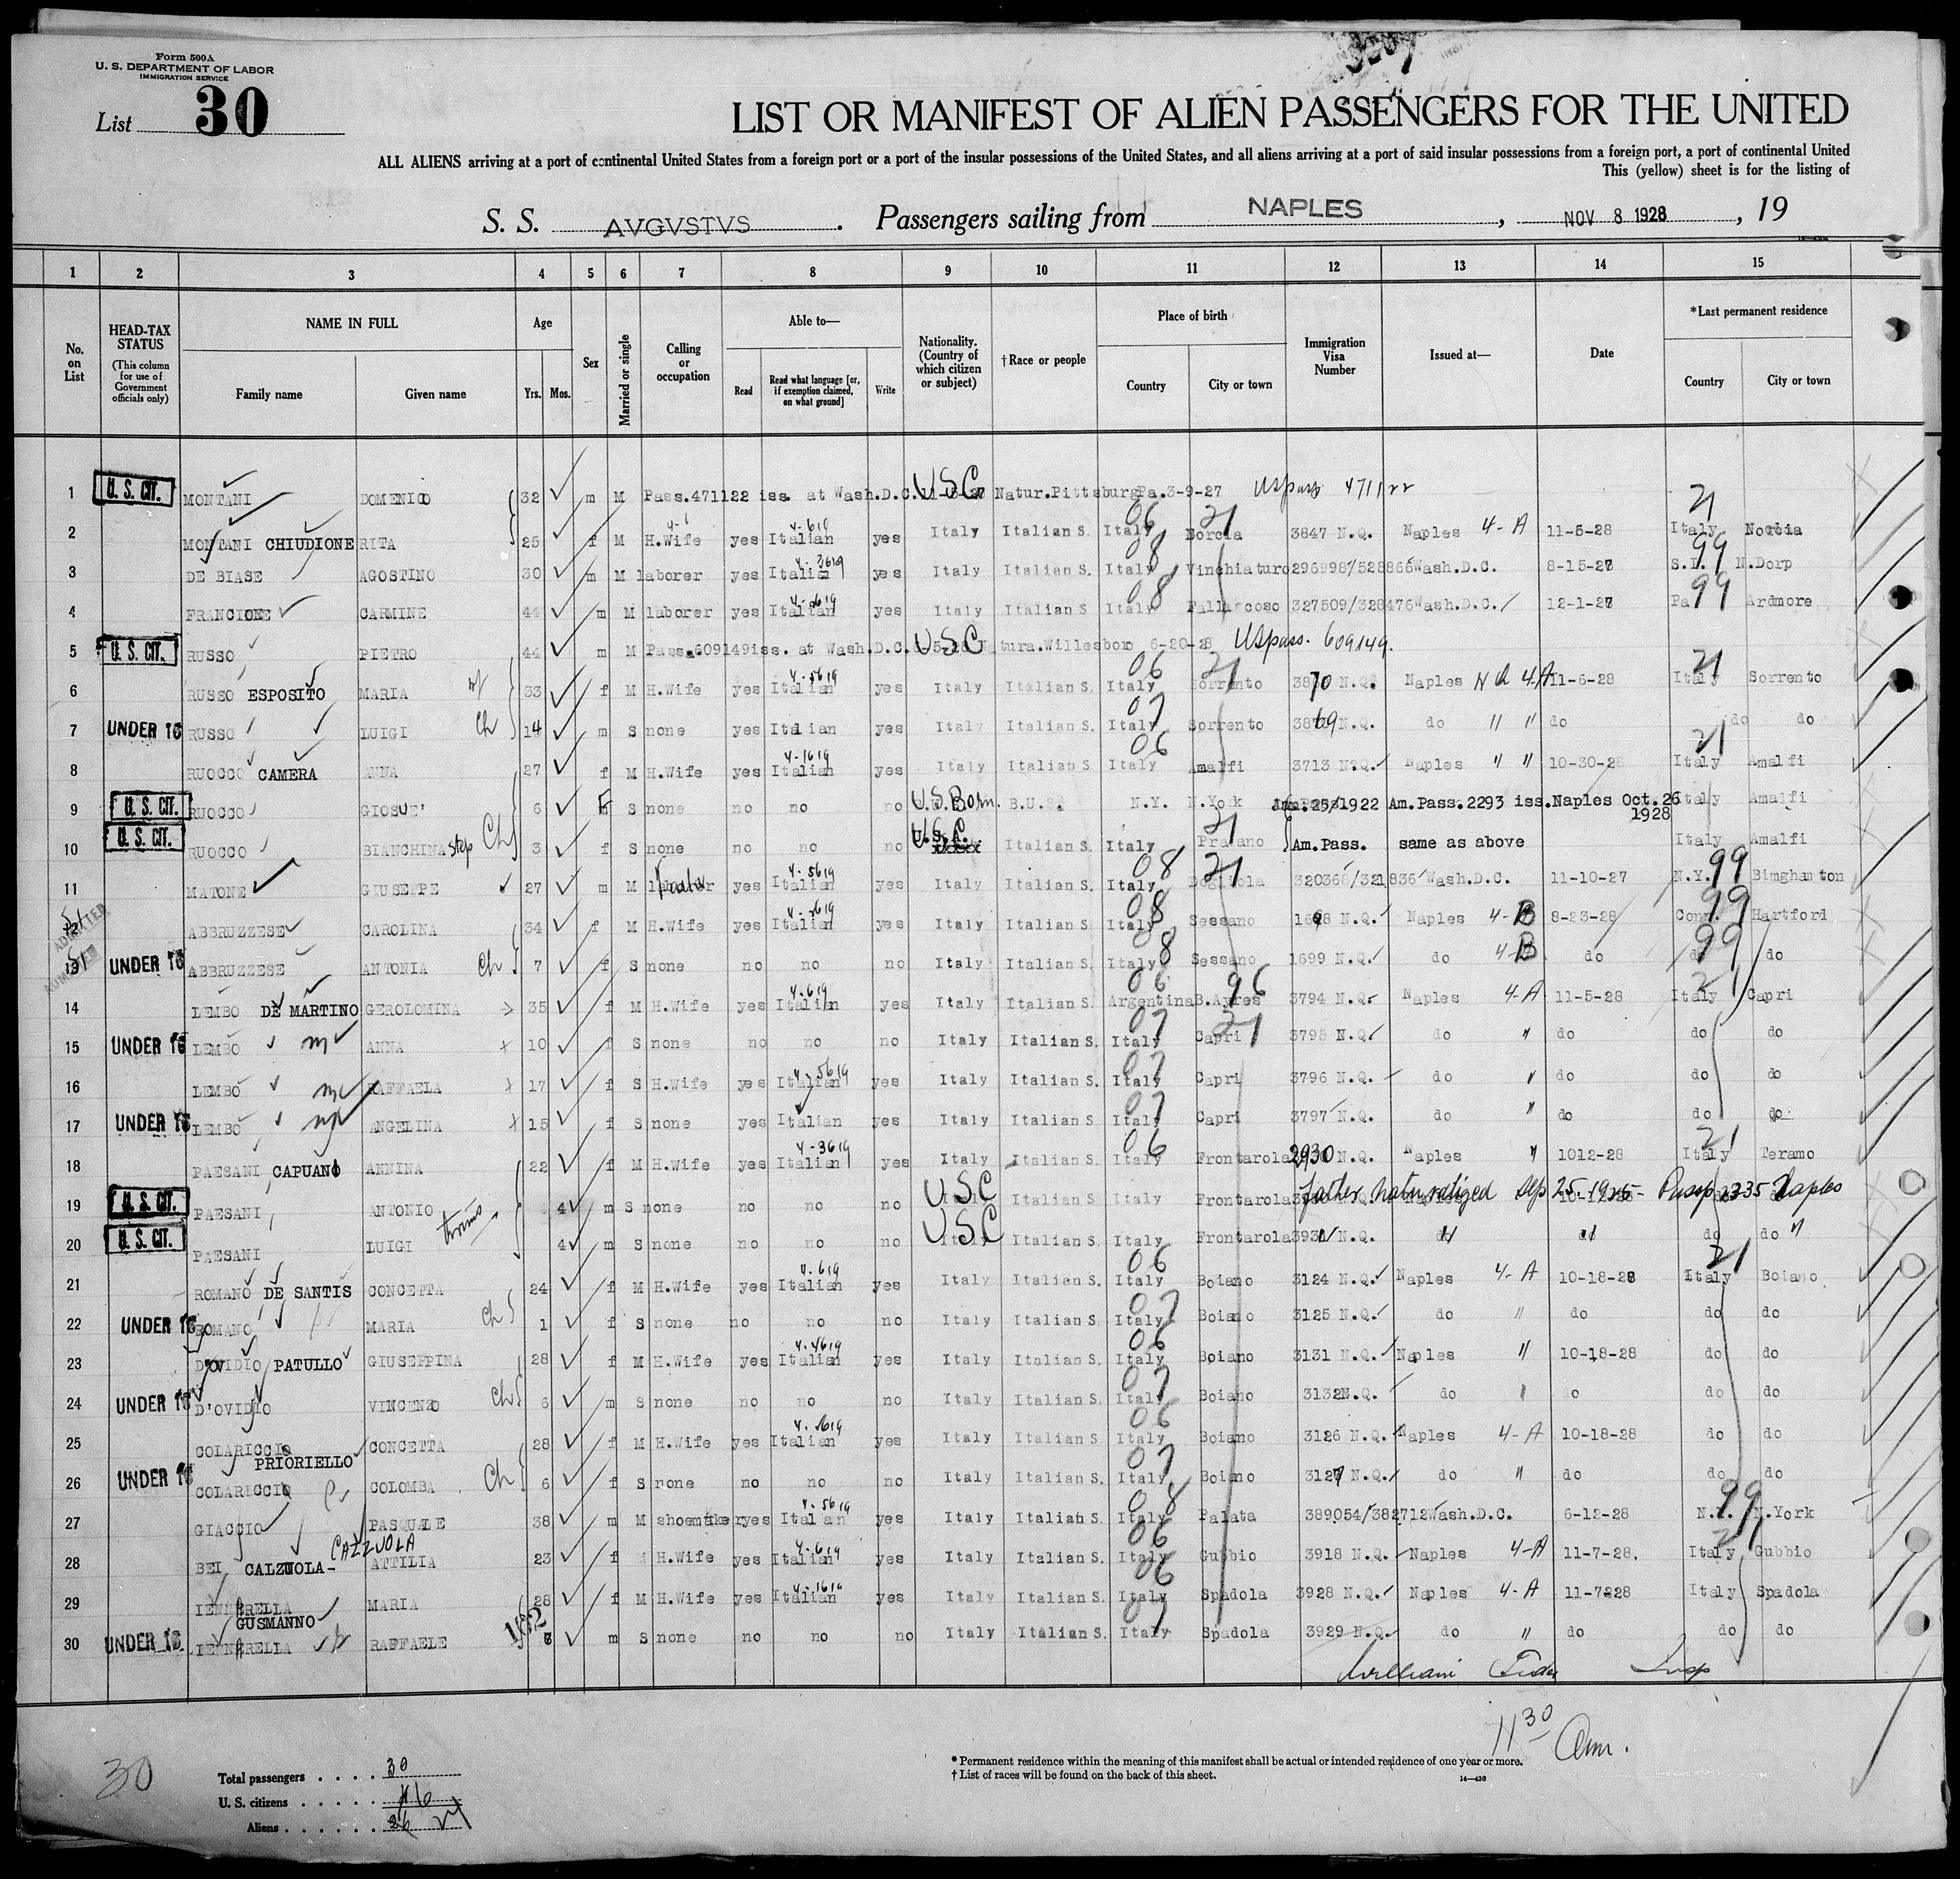 Form 500A
U. S. DEPARTMENT OF LABOR
IMMIGRATION SERVICE
List 30
LIST OR MANIFEST OF ALIEN PASSENGERS FOR THE UNITED
ALL ALIENS arriving at a port of continental United States from a foreign port or a port of the insular possessions of the United States, and all aliens arriving at a port of said insular possessions from a foreign port, a port of continental United
This (yellow) sheet is for the listing of
S. S. AVGVSTVS . Passengers sailing from NAPLES , NOV 8 1928 , 19
1 2 3 4 5 6 7 8 9 10 11 12 13 14 15
No. on List
HEAD-TAX STATUS
(This column for use of Government officials only)
NAME IN FULL
Family name Given name
Age
Yrs. Mos.
Sex
Married or single
Calling or occupation
Able to—
Read
Read what language [or, if exemption claimed, on what ground]
Write
Nationality. (Country of which citizen or subject)
†Race or people
Place of birth
Country City or town
Immigration Visa Number
Issued at—
Date
*Last permanent residence
Country City or town
1 U. S. CIT. MONTANI DOMENICO 32 m M Pass.471122 iss. at Wash.D.C. USC Natur.Pittsburg Pa.3-9-27 US pass 471122
2 MONTANI CHIUDIONE RITA 25 f M H.Wife yes Italian yes Italy Italian S. Italy Norcia 3847 N.Q. Naples 4-A 11-5-28 Italy Norcia
3 DE BIASE AGOSTINO 30 m M laborer yes Italian yes Italy Italian S. Italy Vinchiaturo 296998/528866 Wash.D.C. 8-15-28 S.I. N.Dorp
4 FRANCIONE CARMINE 44 m M laborer yes Italian yes Italy Italian S Italy Fallascoso 327509/328476 Wash.D.C. 12-1-27 Pa Ardmore
5 U. S. CIT. RUSSO PIETRO 44 m M Pass.609149 iss. at Wash.D.C. USC Natura.Willesboro 6-20-28 US pass. 609149.
6 RUSSO ESPOSITO MARIA 33 f M H.Wife yes Italian yes Italy Italian S. Italy Sorrento 3870 N.Q. Naples 4-A 11-6-28 Italy Sorrento
7 UNDER 16 RUSSO LUIGI Ch 14 m S none yes Italian yes Italy Italian S. Italy Sorrento 3869 N.Q. do " " do do do
8 RUOCCO CAMERA ANNA 27 f M H.Wife yes Italian yes Italy Italian S Italy Amalfi 3713 N.Q. Naples " " 10-30-28 Italy Amalfi
9 U. S. CIT. RUOCCO GIOSUE' 6 S none no no no U.S. Born. N.Y. N.York 25/1922 Am.Pass.2293 iss.Naples Oct.26 1928 Italy Amalfi
10 U. S. CIT. RUOCCO BIANCHINA step Ch 3 f S none no no no Italian S. Italy Praiano Am.Pass. same as above Italy Amalfi
11 MATONE GIUSEPPE 27 m M laborer yes Italian yes Italy Italian S. Italy 320366/321836 Wash.D.C. 11-10-27 N.Y. Binghamton
12 ABBRUZZESE CAROLINA 34 f M H.Wife yes Italian yes Italy Italian S. Italy Sessano 1698 N.Q. Naples 4-B 8-23-28 Conn. Hartford
13 UNDER 16 ABBRUZZESE ANTONIA Ch 7 f S none no no no Italy Italian S. Italy Sessano 1699 N.Q. do 4-B do do do
14 LEMBO DE MARTINO GEROLOMINA 35 f M H.Wife yes Italian yes Italy Italian S. Argentina B.Ayres 3794 N.Q. Naples 4-A 11-5-28 Italy Capri
15 UNDER 16 LEMBO ANNA 10 f S none no no no Italy Italian S. Italy Capri 3795 N.Q. do " do do do
16 LEMBO RAFFAELA 17 f S H.Wife yes Italian yes Italy Italian S. Italy Capri 3796 N.Q. do " do do do
17 UNDER 16 LEMBO ANGELINA 15 f S none yes Italian yes Italy Italian S. Italy Capri 3797 N.Q. do " do do do
18 PAESANI CAPUANO ANNINA 22 f M H.Wife yes Italian yes Italy Italian S. Italy Frontarola 2930 N.Q. Naples " 1012-28 Italy Teramo
19 U. S. CIT. PAESANI ANTONIO twins 4 m S none no no no USC Italian S Italy Frontarola father naturalized Sep 25-1925- Passp 2335 Naples
20 U. S. CIT. PAESANI LUIGI 4 m S none no no no USC Italian S. Italy Frontarola 3931 N.Q. do do "
21 ROMANO DE SANTIS CONCETTA 24 f M H.Wife yes Italian yes Italy Italian S. Italy Boiano 3124 N.Q. Naples 4-A 10-18-28 Italy Boiano
22 UNDER 16 ROMANO MARIA Ch 1 f S none no no no Italy Italian S. Italy Boiano 3125 N.Q. do " do do do
23 D'OVIDIO PATULLO GIUSEPPINA 28 f M H.Wife yes Italian yes Italy Italian S. Italy Boiano 3131 N.Q. Naples " 10-18-28 do do
24 UNDER 16 D'OVIDIO VINCENZO Ch 6 m S none no no no Italy Italian S. Italy Boiano 3132 N.Q. do " do do do
25 COLARICCIO PRIORIELLO CONCETTA 28 f M H.Wife yes Italian yes Italy Italian S Italy Boiano 3126 N.Q. Naples 4-A 10-18-28 do do
26 UNDER 16 COLARICCIO COLOMBA Ch 6 f S none no no no Italy Italian S. Italy Boiano 3127 N.Q. do " do do do
27 GIACCIO PASQUALE 38 m M shoemaker yes Italian yes Italy Italian S. Italy Palata 389054/382712 Wash.D.C. 6-12-28 N.Y. N.York
28 BEI CALZUOLA- CAZZUOLA ATTILIA 23 f M H.Wife yes Italian yes Italy Italian S. Italy Gubbio 3918 N.Q. Naples 4-A 11-7-28. Italy Gubbio
29 GUSMANNO MARIA 28 f M H.Wife yes Italian yes Italy Italian S. Italy Spadola 3928 N.Q. Naples 4-A 11-7-28 Italy Spadola
30 UNDER 16 RAFFAELE m S none no no no Italy Italian S. Italy Spadola 3929 N.Q. do " do do do
William Insp
11 30 am.
30
Total passengers . . . . . 30
U. S. citizens . . . . . 6
Aliens . . . . . .
* Permanent residence within the meaning of this manifest shall be actual or intended residence of one year or more.
† List of races will be found on the back of this sheet.
14—430